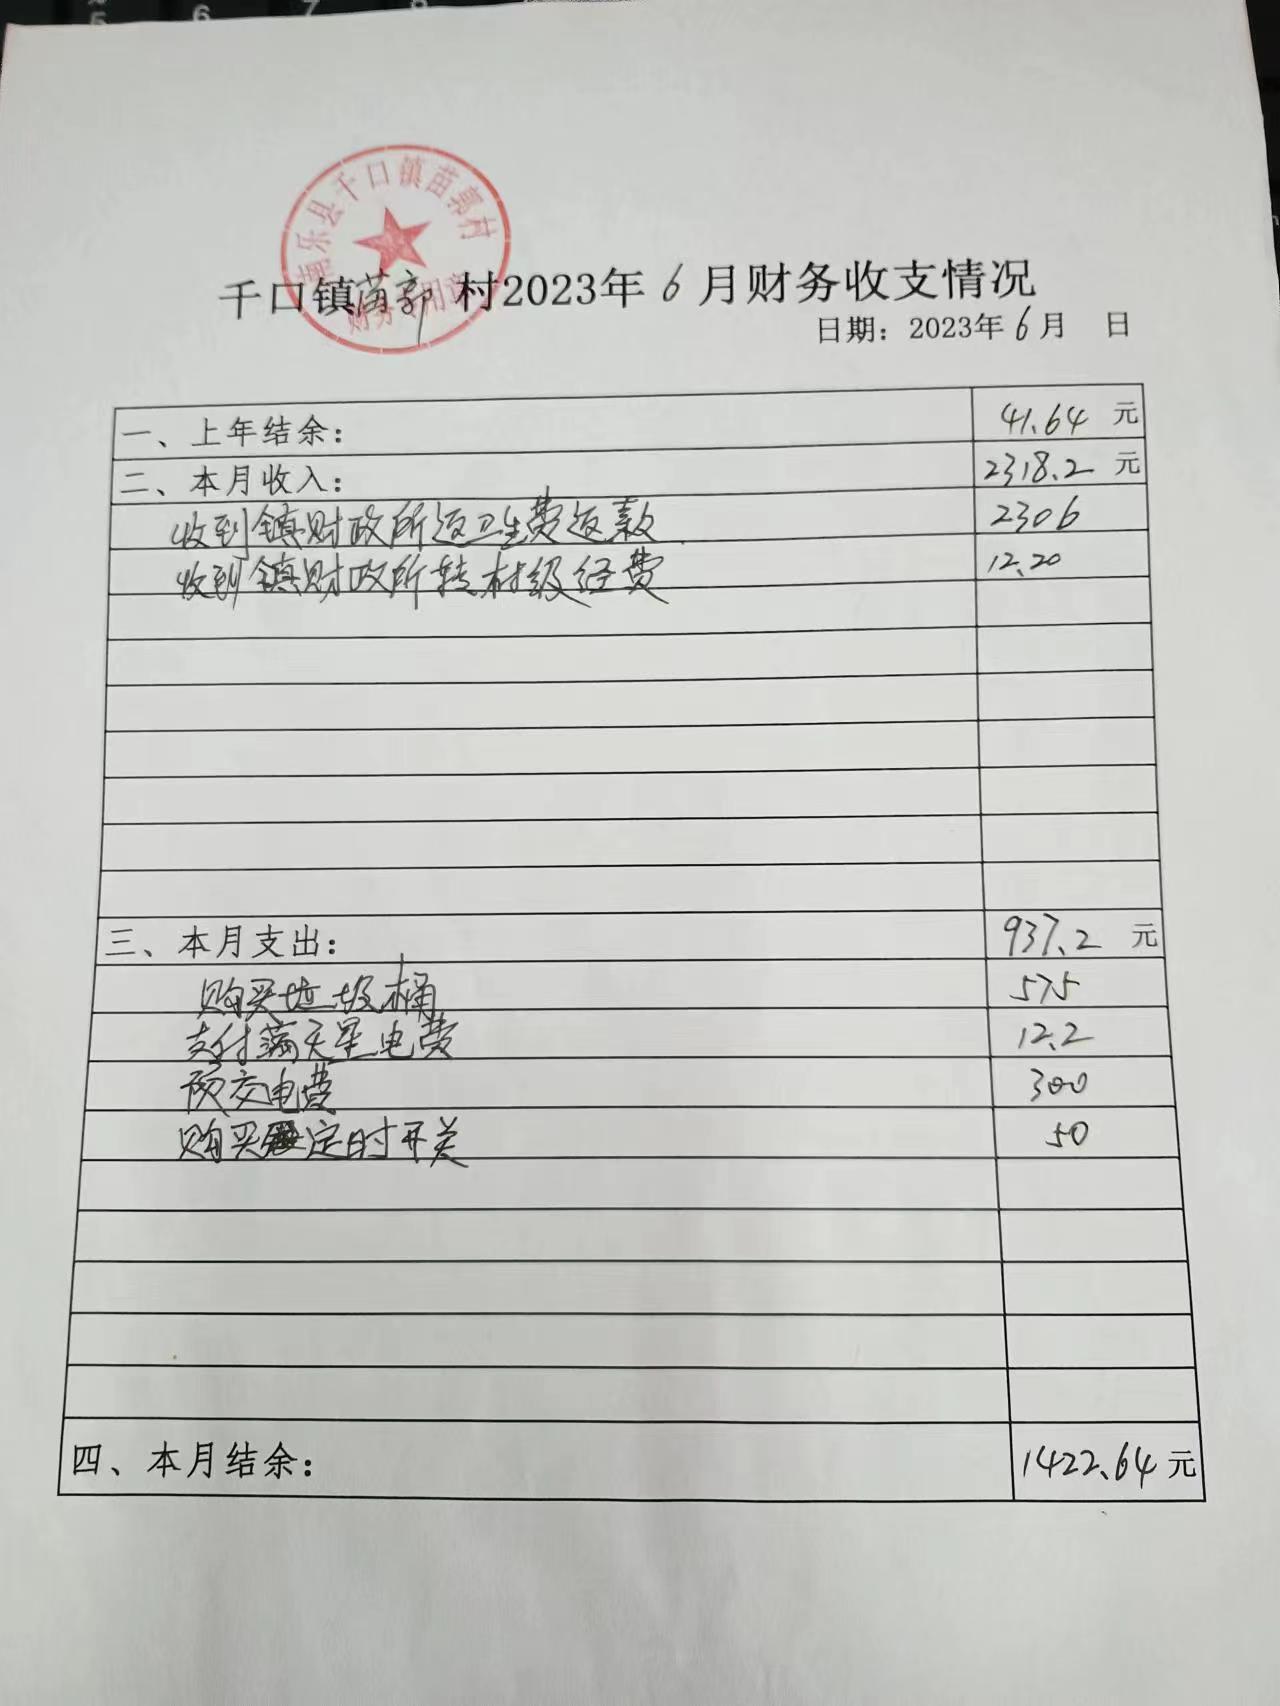 南乐县千口镇苗郭村
财务专用章
千口镇苗郭村2023年6月财务收支情况
日期：2023年6月 日
一、上年结余： 41.64 元
二、本月收入： 2318.2 元
收到镇财政所返卫生费返款 2306
收到镇财政所转村级经费 12.20
三、本月支出： 937.2 元
购买垃圾桶 575
支付满天星电费 12.2
预交电费 300
购买定时开关 50
四、本月结余： 1422.64元